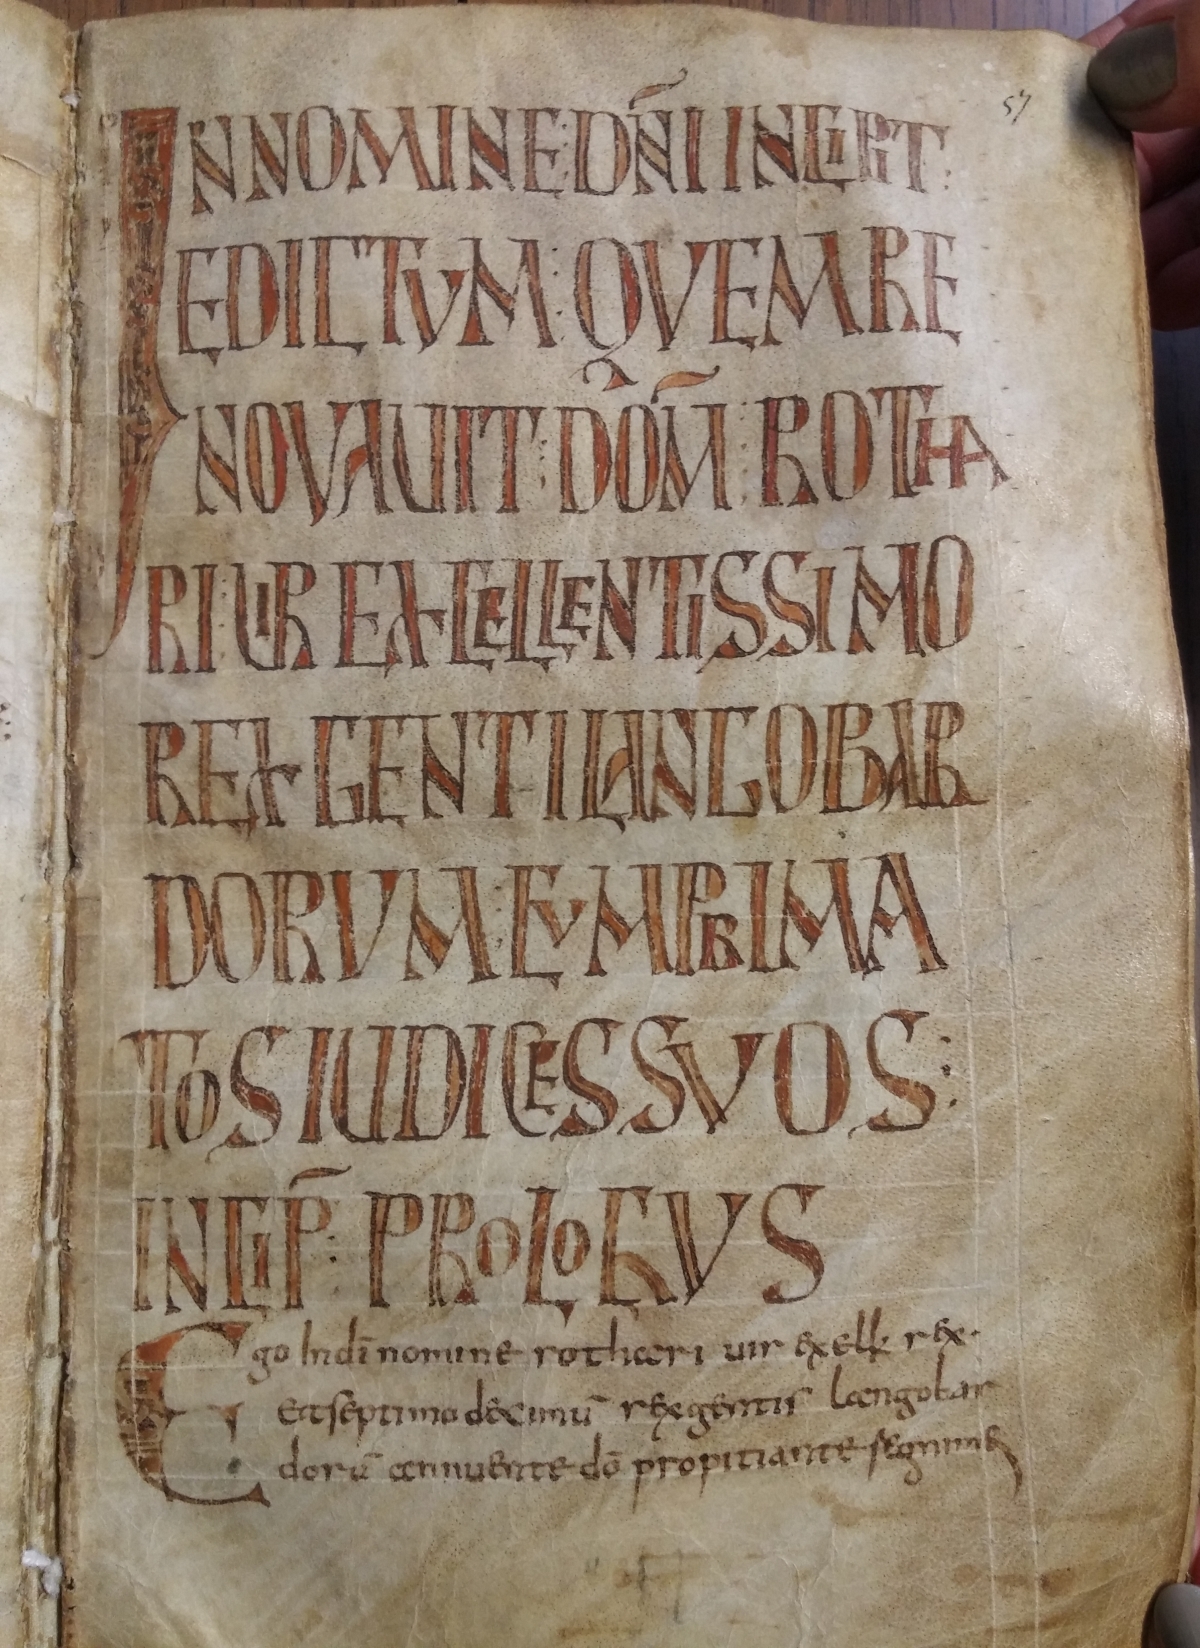 57
IN NOMINE DÑI INCIPIT:
EDICTUM: QVEM RE
NOVAUIT: DOM̃: ROTHA
RI: UIR EXCELLENTISSIMO
REX GENTI LANGOBAR
DORVM: CVM PRIMA
TOS IUDICES SVOS:
INCIP̃: PROLOGVS
Ego In dī nomine rothari uir excell rex.
et septimo decimū rex gentis langobar
dorū annuente dō propitiante